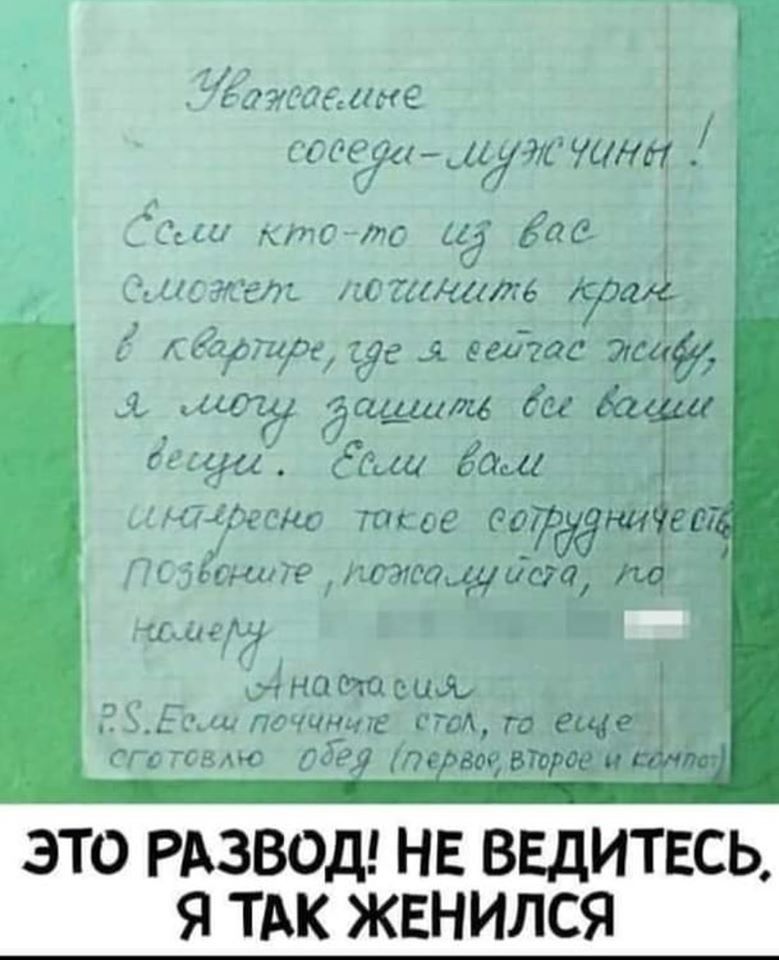 Уважаемые
соседи-мужчины!
Если кто-то из вас
сможет починить кран
в квартире, где я сейчас живу,
я могу зашить все ваши
вещи. Если вам
интересно такое сотрудничество,
позвоните, пожалуйста, по
номеру
Анастасия
P.S. Если почините стол, то еще
сготовлю обед (первое, второе и компот)
ЭТО РАЗВОД! НЕ ВЕДИТЕСЬ.
Я ТАК ЖЕНИЛСЯ